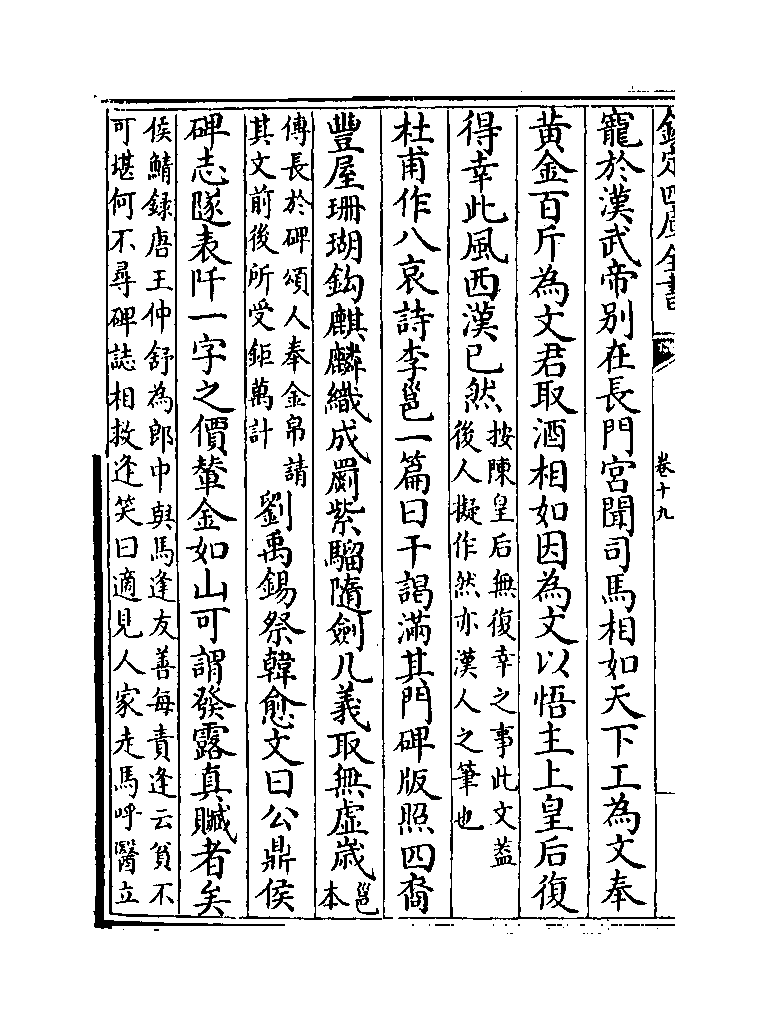 欽定四庫全書
卷十九
寵於漢武帝别在長門宮聞司馬相如天下工為文奉
黃金百斤為文君取酒相如因為文以悟主上皇后復
得幸此風西漢已然
按陳皇后無復幸之事此文葢
後人擬作然亦漢人之筆也
杜甫作八哀詩李邕一篇曰干謁滿其門碑版照四裔
豐屋珊瑚鈎麒麟織成罽紫騮隨劍几義取無虛歳
邕
本
傳長於碑頌人奉金帛請
其文前後所受鉅萬計
劉禹錫祭韓愈文曰公鼎侯
碑志隧表阡一字之價輦金如山可謂發露真贓者矣
侯鯖録唐王仲舒為郎中與馬逢友善每責逢云貧不
可堪何不尋碑誌相救逢笑曰適見人家走馬呼醫立